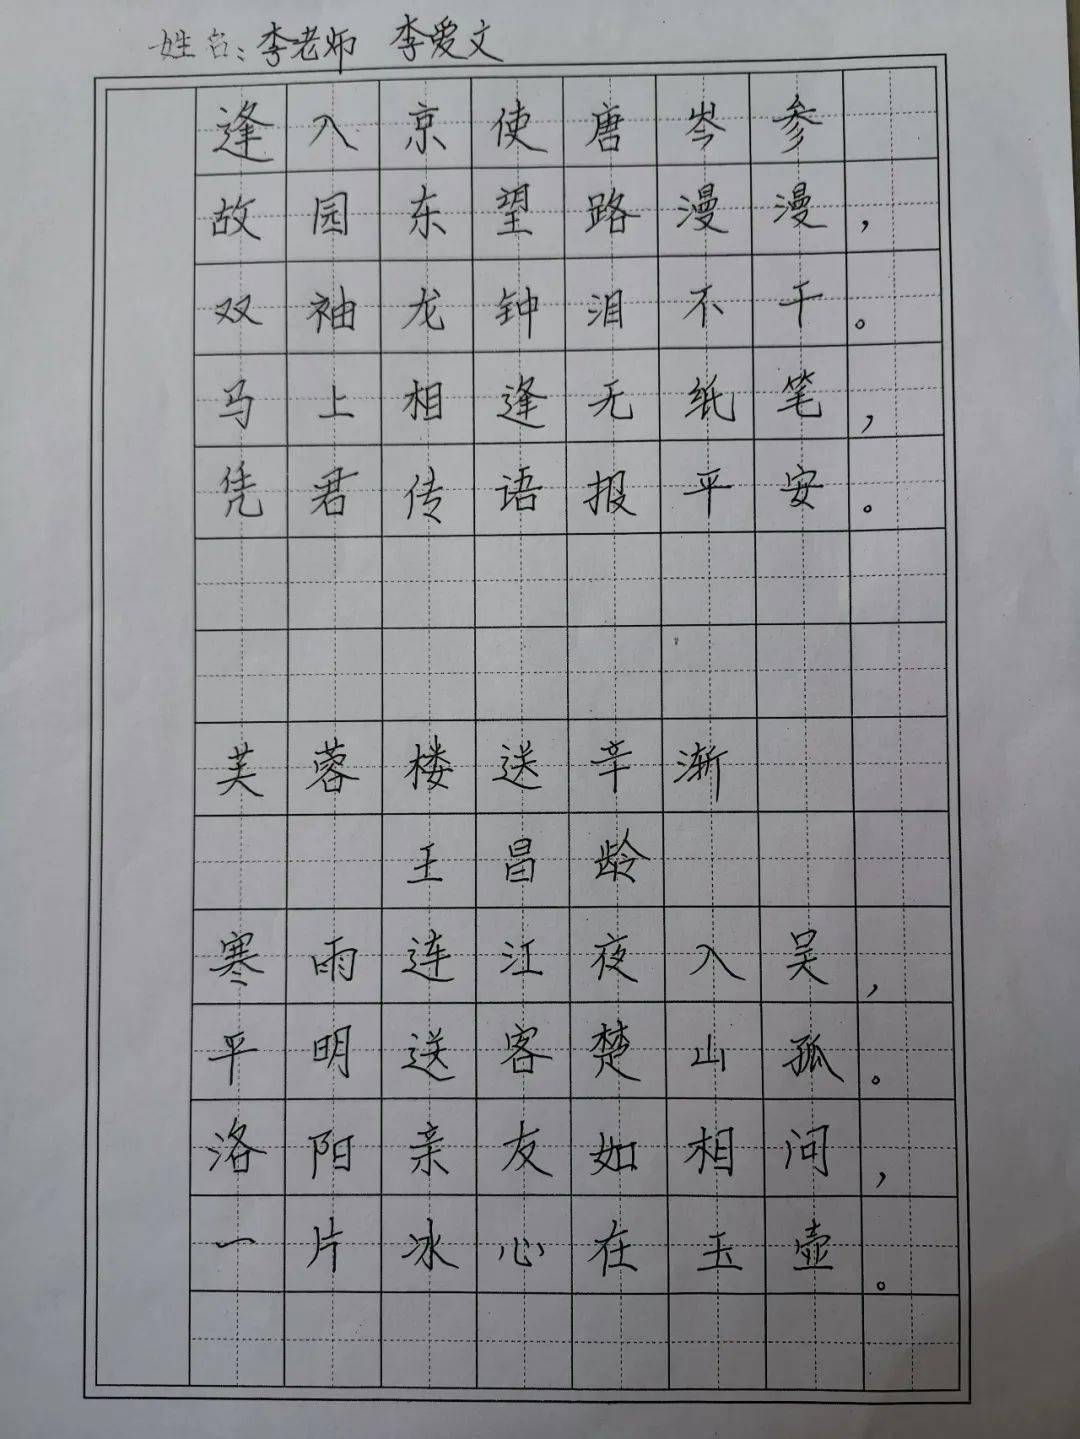 姓名:李老师 李爱文
逢入京使唐岑参
故园东望路漫漫,
双袖龙钟泪不干。
马上相逢无纸笔,
凭君传语报平安。
芙蓉楼送辛渐
王昌龄
寒雨连江夜入吴,
平明送客楚山孤。
洛阳亲友如相问,
一片冰心在玉壶。